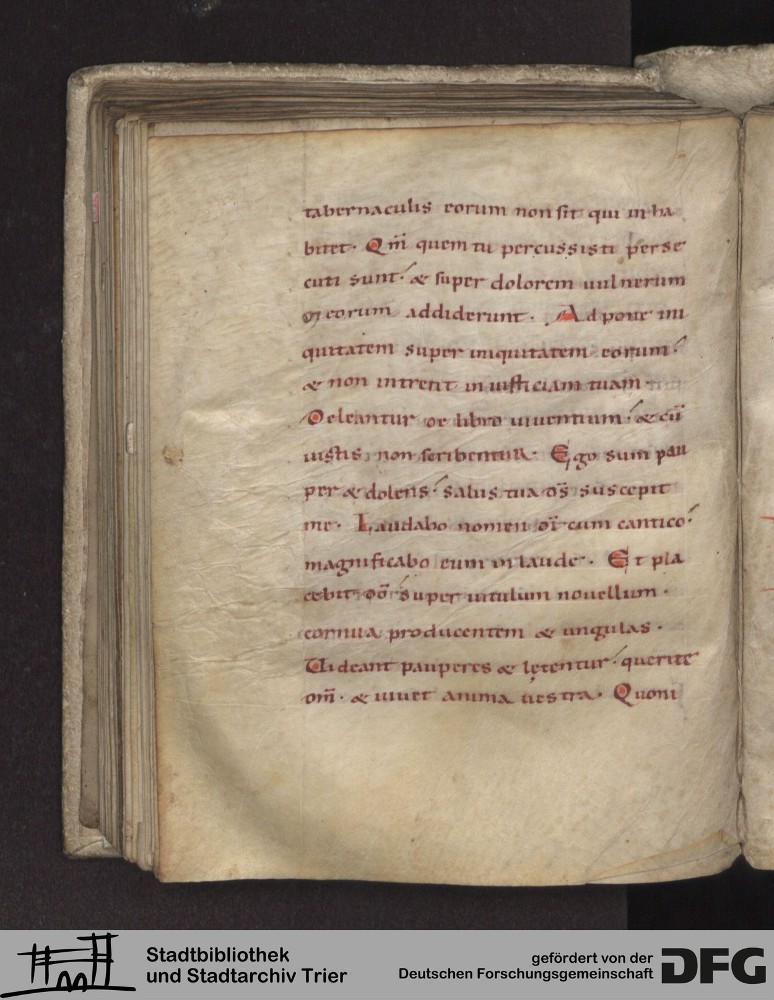 tabernaculis eorum non sit qui inha
bitet. Qm̅ quem tu percussisti perse
cuti sunt. & super dolorem uulnerum
meorum addiderunt. Adpone ini
quitatem super iniquitatem eorum.
& non intrent in iusticiam tuam.
Deleantur de libro uiuentium. & cu̅
iustis non scribentur. Ego sum pau
per & dolens. salus tua ds̅ suscepit
me. Laudabo nomen di̅ cum cantico.
magnificabo eum in laude. Et pla
cebit do̅ super uitulum nouellum.
cornua producentem & ungulas.
Uideant pauperes & lętentur. querite
dm̅. & uiuet anima uestra. Quoni
Stadtbibliothek
und Stadtarchiv Trier
gefördert von der
Deutschen Forschungsgemeinschaft
DFG